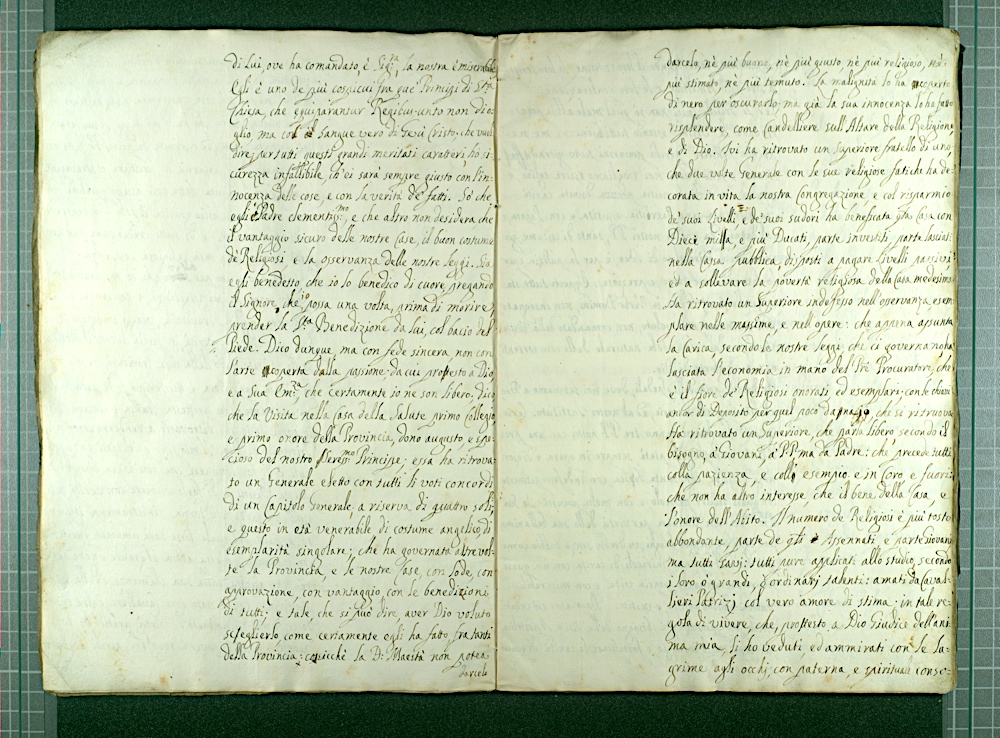 di Lui, ove ha comandato, è la nostra è miserabile
Egli è uno de più cospicui fra que' Principi di S.ta
Chiesa, che equiparantur Regibus: unto non di o-
glio, ma col Sangue vero di Gesù Cristo: che vuol
dire, per tutti questi grandi meritati caratteri ho si-
curezza infallibile, ch' ei sarà sempre giusto con l'in-
nocenza delle cose, e con la verità de' fatti. Sò che
egli è Padre clementiss:mo, e che altro non desidera che
il vantaggio sicuro delle nostre Case, il buon costume
de' Religiosi e la osservanza delle nostre leggi. Sia
egli benedetto, che io lo benedico di cuore, pregando
il Signore, che io possa una volta, prima di morire,
prender la S.ta Benedizione da lui, col bacio del
Piede. Dico dunque, ma con fede sincera, non con
l'arte coperta dalla passione, da cui protesto a Dio,
e a Sua Em.za che certamente io ne son libero; Dico
che la Visita nella Casa della Salute primo Collegio,
e primo onore della Provincia, dono augusto, e spe-
cioso del nostro Seren:mo Principe; essa ha ritrova-
to un Generale eletto con tutti li voti concordi
di un Capitolo Generale, a riserva di quattro soli;
e questo in età venerabile di costume angelico, di
esemplarità singolare; che ha governata altre vol-
te la Provincia, e le nostre Case, con lode, con
approvazione, con vantaggio, con le benedizioni
di tutti: e tale, che si può dire, aver Dio voluto
sceglierlo, come certamente egli ha fatto, fra tanti
della Provincia: cosicchè la D: Maestà non potea
darcelo
darcelo, nè più buono, nè più giusto, nè più religioso, nè
più stimato, nè più temuto. La malignità lo ha coperto
di nero per oscurarlo; ma già la sua innocenza lo ha fatto
risplendere, come Candelliere sull'Altare della Religione,
e di Dio. Ivi ha ritrovato un Superiore fratello di uno
che due volte Generale con le sue religiose fatiche ha de-
corata in vita la nostra Congregazione, e col risparmio
de' suoi Livelli e de' suoi sudori ha beneficata q.ta Casa con
Dieci milla, e più Ducati, parte investiti, parte lasciati
nella Cassa pubblica, disposti a pagare Livelli passivi
ed a sollevare la povertà religiosa della Casa medesima
Ha ritrovato un Superiore indefesso nell'osservanza, esem-
plare nelle massime, e nell'opere: che appena assunta
la Carica, secondo le nostre leggi, che ci governa no ha
lasciata l'economia in mano del Pre Procuratore, che
è il fiore de' Religiosi onorati ed esemplari: con le chiavi
anlor di Deposito per quel poco danajo, che si ritruova
Ha ritrovato un Superiore, che parla libero, secondo il
bisogno, a' Giovani, a' P.P. ma da Padre: che precede tutti
colla pazienza, e coll' esempio e in Coro, e fuori:
che non ha altro interesse che il bene della Casa, e
l'onore dell'Abito. Il numero de Religiosi è più tosto
abbondante, parte de gli Assennati e parte Giovani
ma tutti saggi: tutti pure applicati allo studio, secondo
i loro ò grandi, ò ordinarj talenti: amati da Caval-
lieri Patrizj col vero amore di stima: in tale re-
gola di vivere, che, protesto a Dio Giudice dell'ani
ma mia, li ho veduti, ed ammirati con le la-
grime agli occhi, con paterna, e spirituale conso-